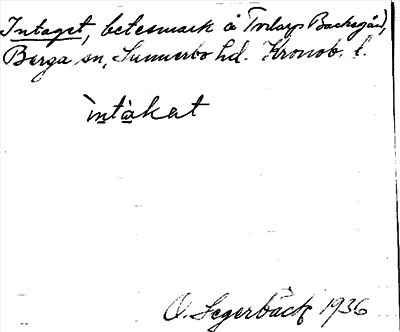 Intaget, betesmark å Torlarp Backegård,
Berga sn, Sunnerbo hd. Kronob. l.
ìntàkat
O. Segerbäck 1936